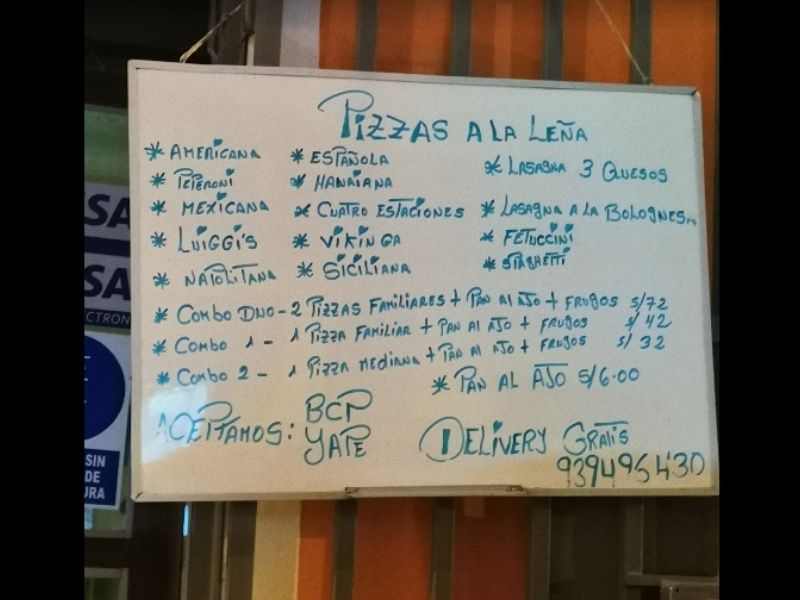 PIZZAS A LA LEÑA
* AMERICANA
* PEPERONI
* MEXICANA
* LUIGGI'S
* NAPOLITANA
* ESPAÑOLA
* HAWAIANA
* CUATRO ESTACIONES
* VIKINGA
* SICILIANA
* LASAGNA 3 QUESOS
* LASAGNA A LA BOLOGNESA
* FETUCCINI
* SPAGHETTI
* COMBO DUO - 2 PIZZAS FAMILIARES + PAN AL AJO + FRUGOS S/72
* COMBO 1 - 1 PIZZA FAMILIAR + PAN AL AJO + FRUGOS S/ 42
* COMBO 2 - 1 PIZZA MEDIANA + PAN AL AJO + FRUGOS S/ 32
* PAN AL AJO S/6.00
ACEPTAMOS: BCP
YAPE
DELIVERY GRATIS
939495430
SA
SA
ECTRON
SIN
DE
URA